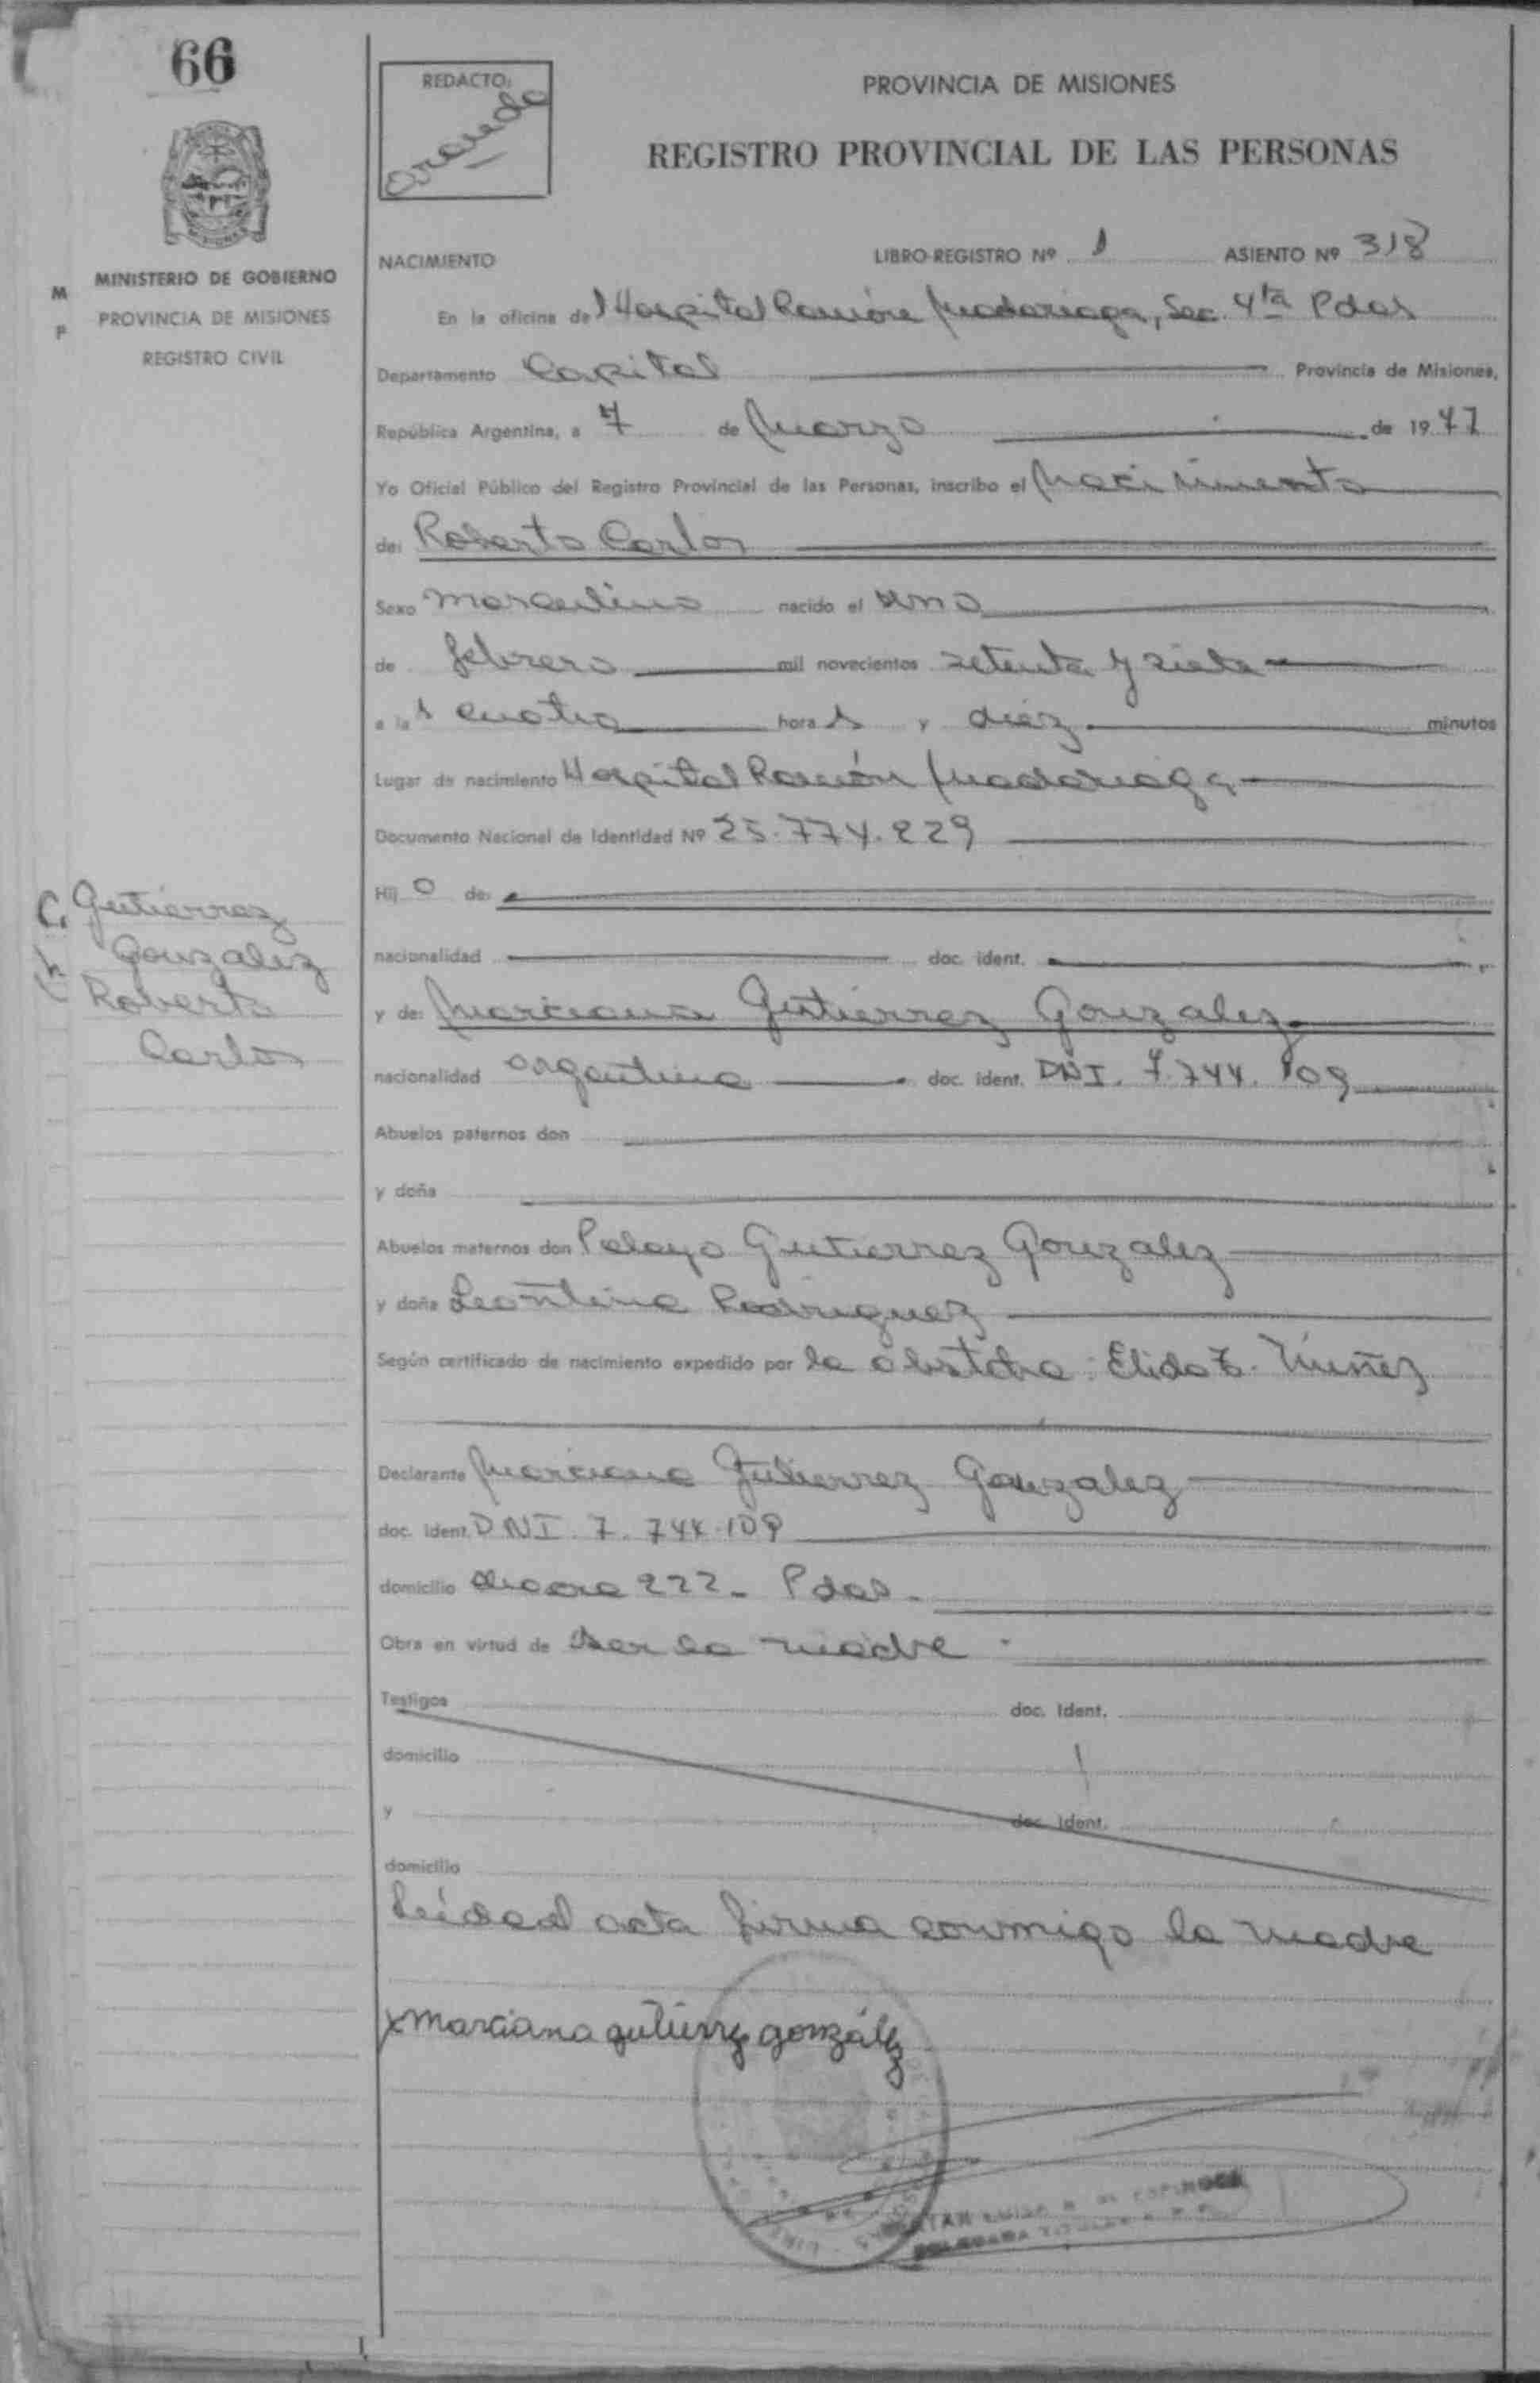 66
REDACTO:
PROVINCIA DE MISIONES
REGISTRO PROVINCIAL DE LAS PERSONAS
MINISTERIO DE GOBIERNO
PROVINCIA DE MISIONES
REGISTRO CIVIL
M
P
NACIMIENTO LIBRO-REGISTRO Nº 1 ASIENTO Nº 318
En la oficina del Hospital Ramón Madariaga, Sec. 4ta Pdas
Departamento Capital Provincia de Misiones,
República Argentina, a 7 de Marzo de 1977
Yo Oficial Público del Registro Provincial de las Personas, inscribo el Nacimiento
de: Roberto Carlos
Sexo masculino nacido el uno
de febrero mil novecientos setenta y siete
a las cuatro horas y diez minutos
Lugar de nacimiento Hospital Ramón Madariaga
Documento Nacional de Identidad Nº 25.774.229
Hijo de:
nacionalidad doc. ident.
y de: Marciana Gutierrez Gonzalez
nacionalidad argentina doc. ident. DNI. 7.744.109
Abuelos paternos don
y doña
Abuelos maternos don Pelayo Gutierrez Gonzalez
y doña Leontina Rodriguez
Según certificado de nacimiento expedido por la obstetra: Elida Nuñez
Declarante Marciana Gutierrez Gonzalez
doc. ident. DNI. 7.744.109
domicilio 222 - Pdas.
Obra en virtud de ser la madre
Testigos doc. Ident.
domicilio
y doc. Ident.
domicilio
Leída el acta firma conmigo la madre
x marciana gutierrez gonzález
Gutierrez
Gonzalez
Roberto
Carlos